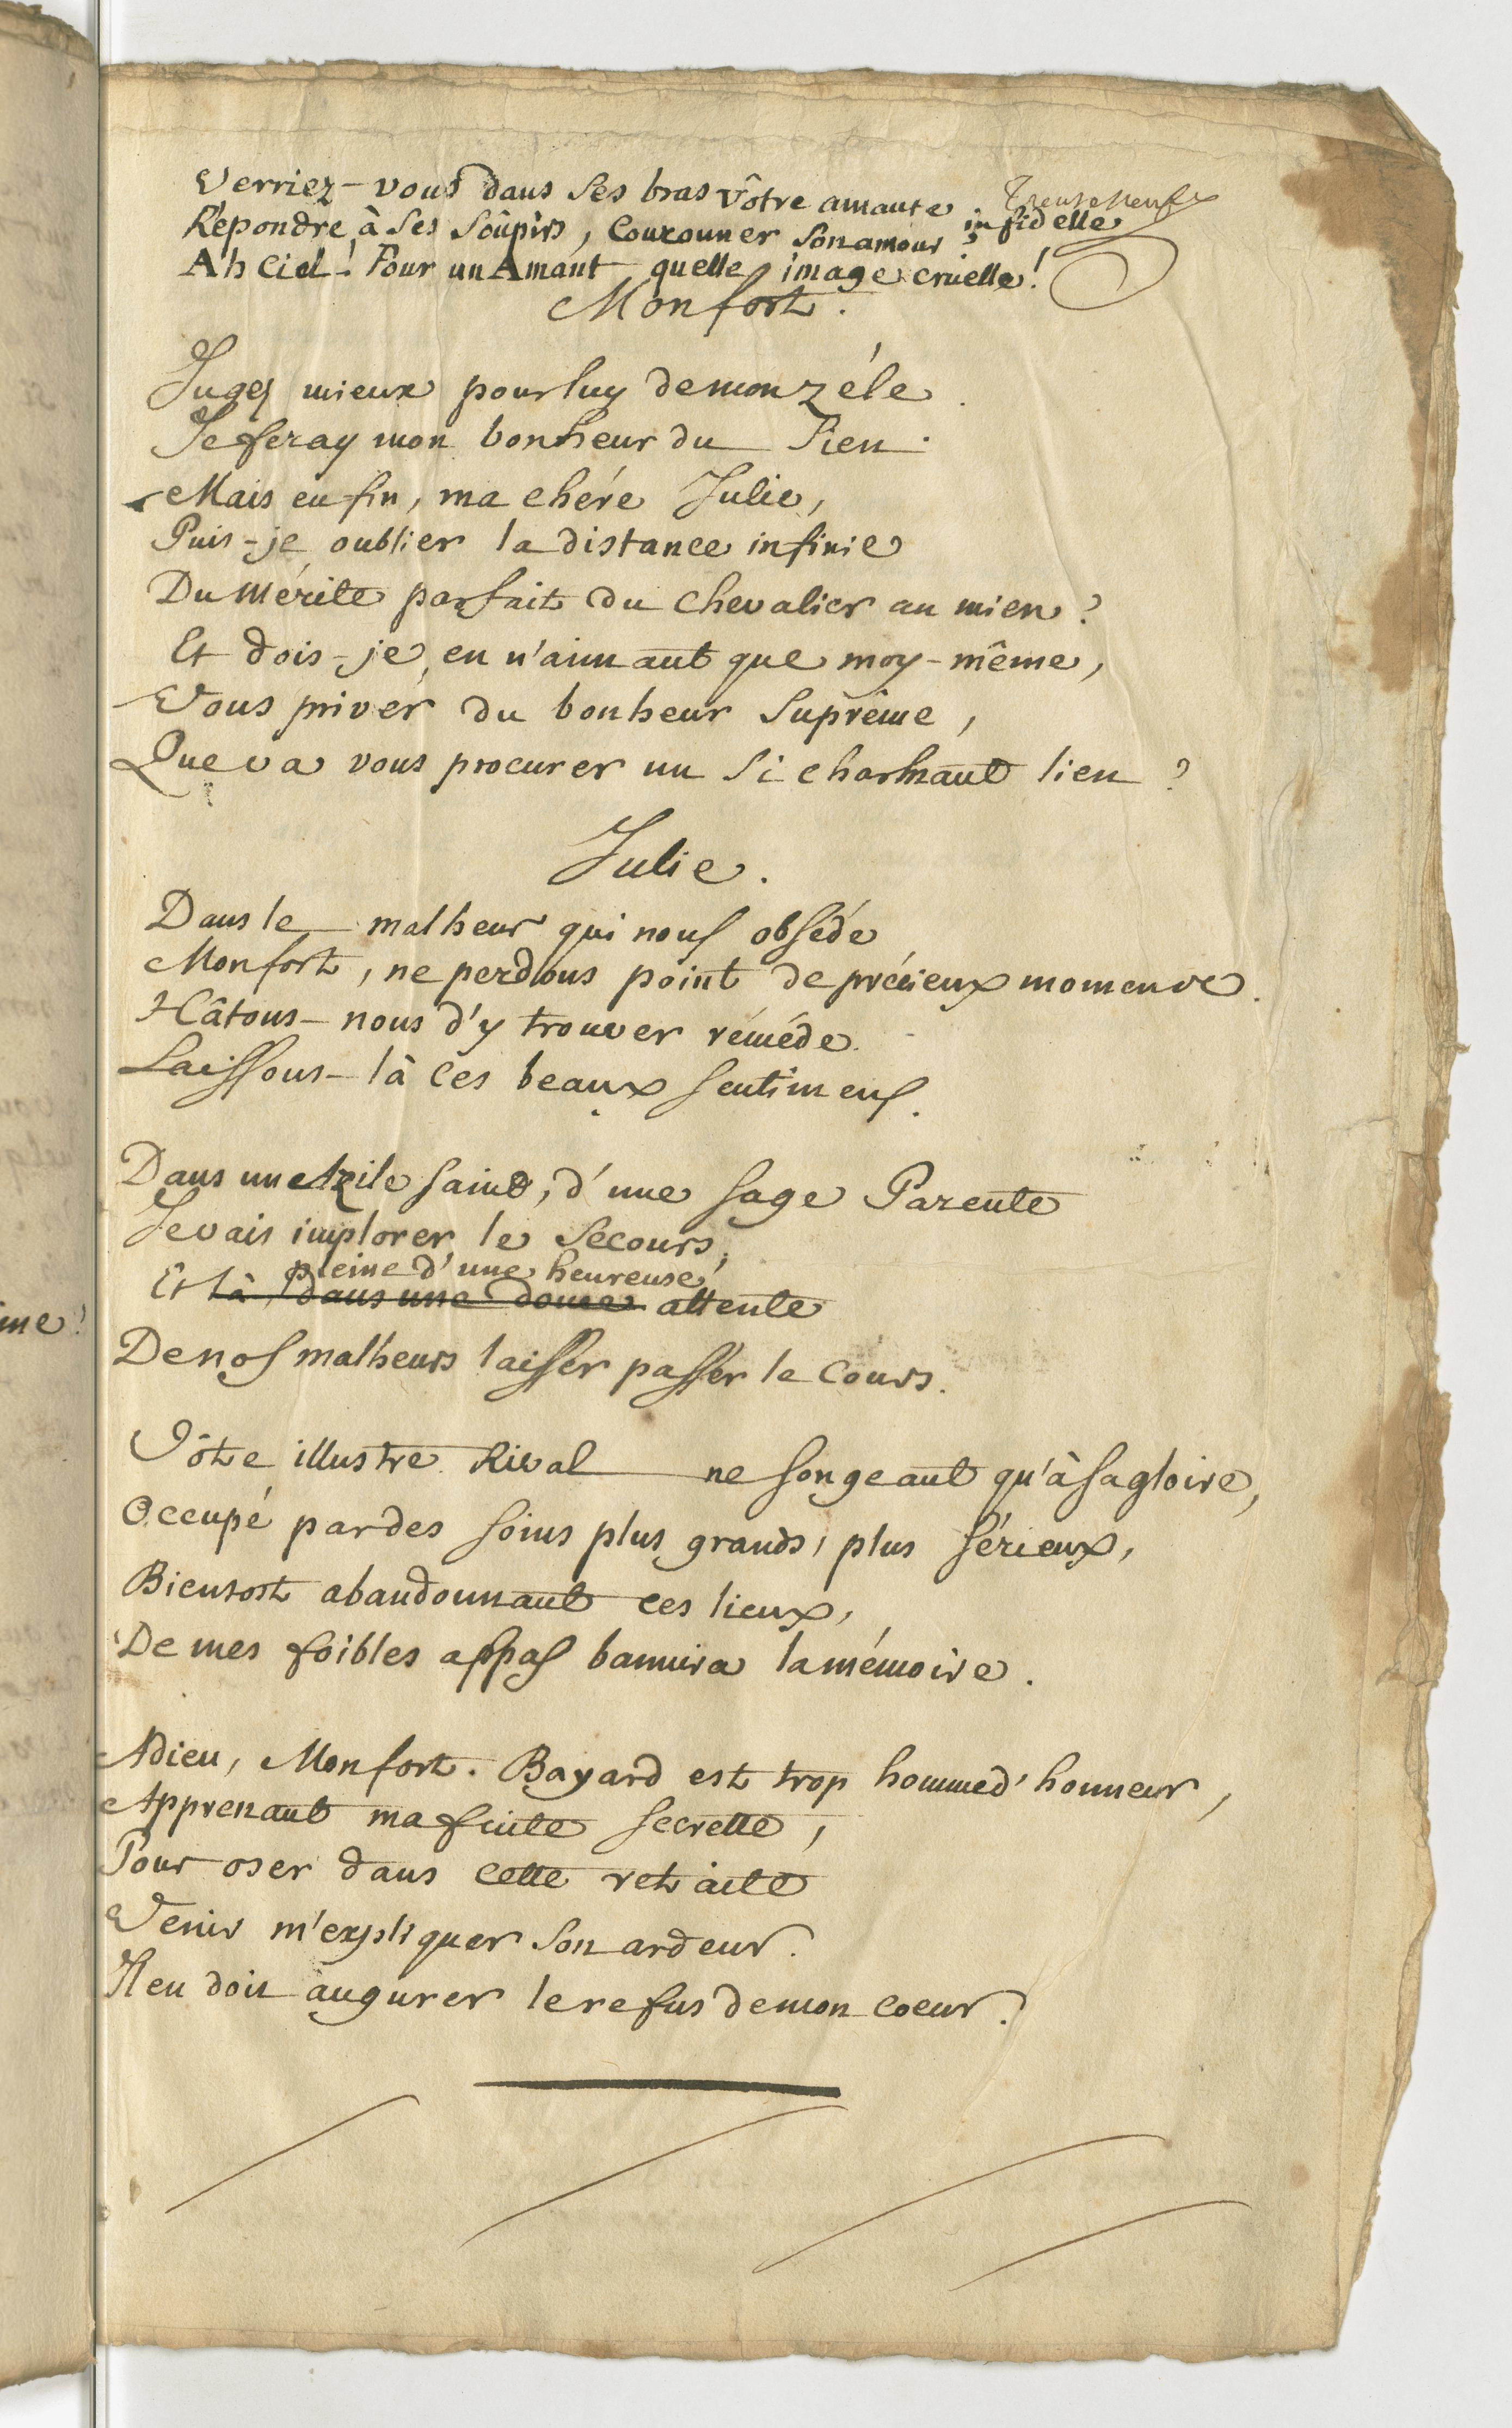 Trenteneuf
Verriez-vous dans Ses bras vôtre amante infidelle
Répondre à Ses Soûpirs, Couronner Son amour ?
Ah Ciel ! Pour un Amant quelle image cruelle !
Monfort.
Jugez mieux pour luy de mon zéle.
Je feray mon bonheur du Sien.
Mais enfin, ma chére Julie,
Puis-je oublier la distance infinie
Du Mérite parfait du Chevalier au mien ?
Et dois-je, en n'aimant que moy-même,
Vous priver du bonheur Suprême,
Que va vous procurer un Si charmant lien ?
Julie.
Dans le malheur qui nous obséde
Monfort, ne perdons point de précieux momens.
Hâtons-nous d'y trouver reméde.
Laissons-là Ces beaux Sentimens.
Dans un Azile Saint, d'une Sage Parente
Je vais implorer le Secours,
pleine d'une heureuse
Et là, dans une douce attente
De nos malheurs laisser passer le Cours.
Vôtre illustre Rival ne Songeant qu'à Sa gloire,
Occupé par des Soins plus grands, plus Sérieux,
Bientost abandonnant ces lieux,
De mes foibles appas bannira la mémoire.
Adieu, Monfort. Bayard est trop homme d'honneur,
Apprenant ma fuite Secrette,
Pour oser dans cette retraite
Venir m'expliquer Son ardeur.
Il en doit augurer le refus de mon Coeur.